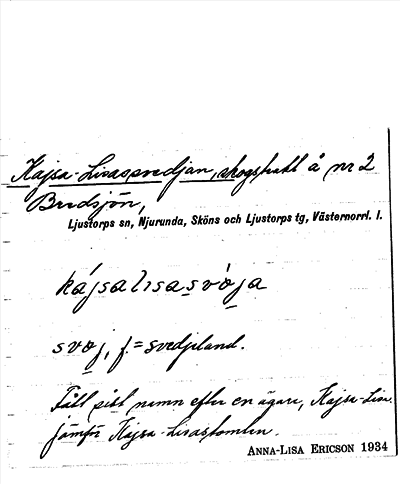 Kajsa-Lisasvedjan, skogstrakt å nr 2
Bredsjön,
Ljustorps sn, Njurunda, Sköns och Ljustorps tg, Västernorrl. l.
kájsalisasvòja
svoj, f. = svedjeland.
Fått sitt namn efter en ägare, Kajsa-Lisa.
Jämför Kajsa-Lisastomten.
ANNA-LISA ERICSON 1934